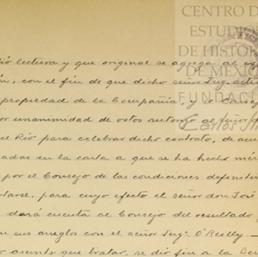 CENTRO D
ESTUDI
DE HISTOR
DE MÉXIC
FUNDACI
Carlos
lectura y que original se agrega al
con el fin de que dicho señor Ing.
propiedad de la Compañía, y el Consej
or unanimidad de votos autorizó al señor
el Río para celebrar dicho contrato, de acu
adas en la carta a que se ha hecho mér
por el Consejo de las condiciones definitiv
tarse, para cuyo efecto el señor don José
dará cuenta al Consejo del resultado
sus arreglos con el señor Ingº O'Reilly.—
asunto que tratar, se dió fin a la